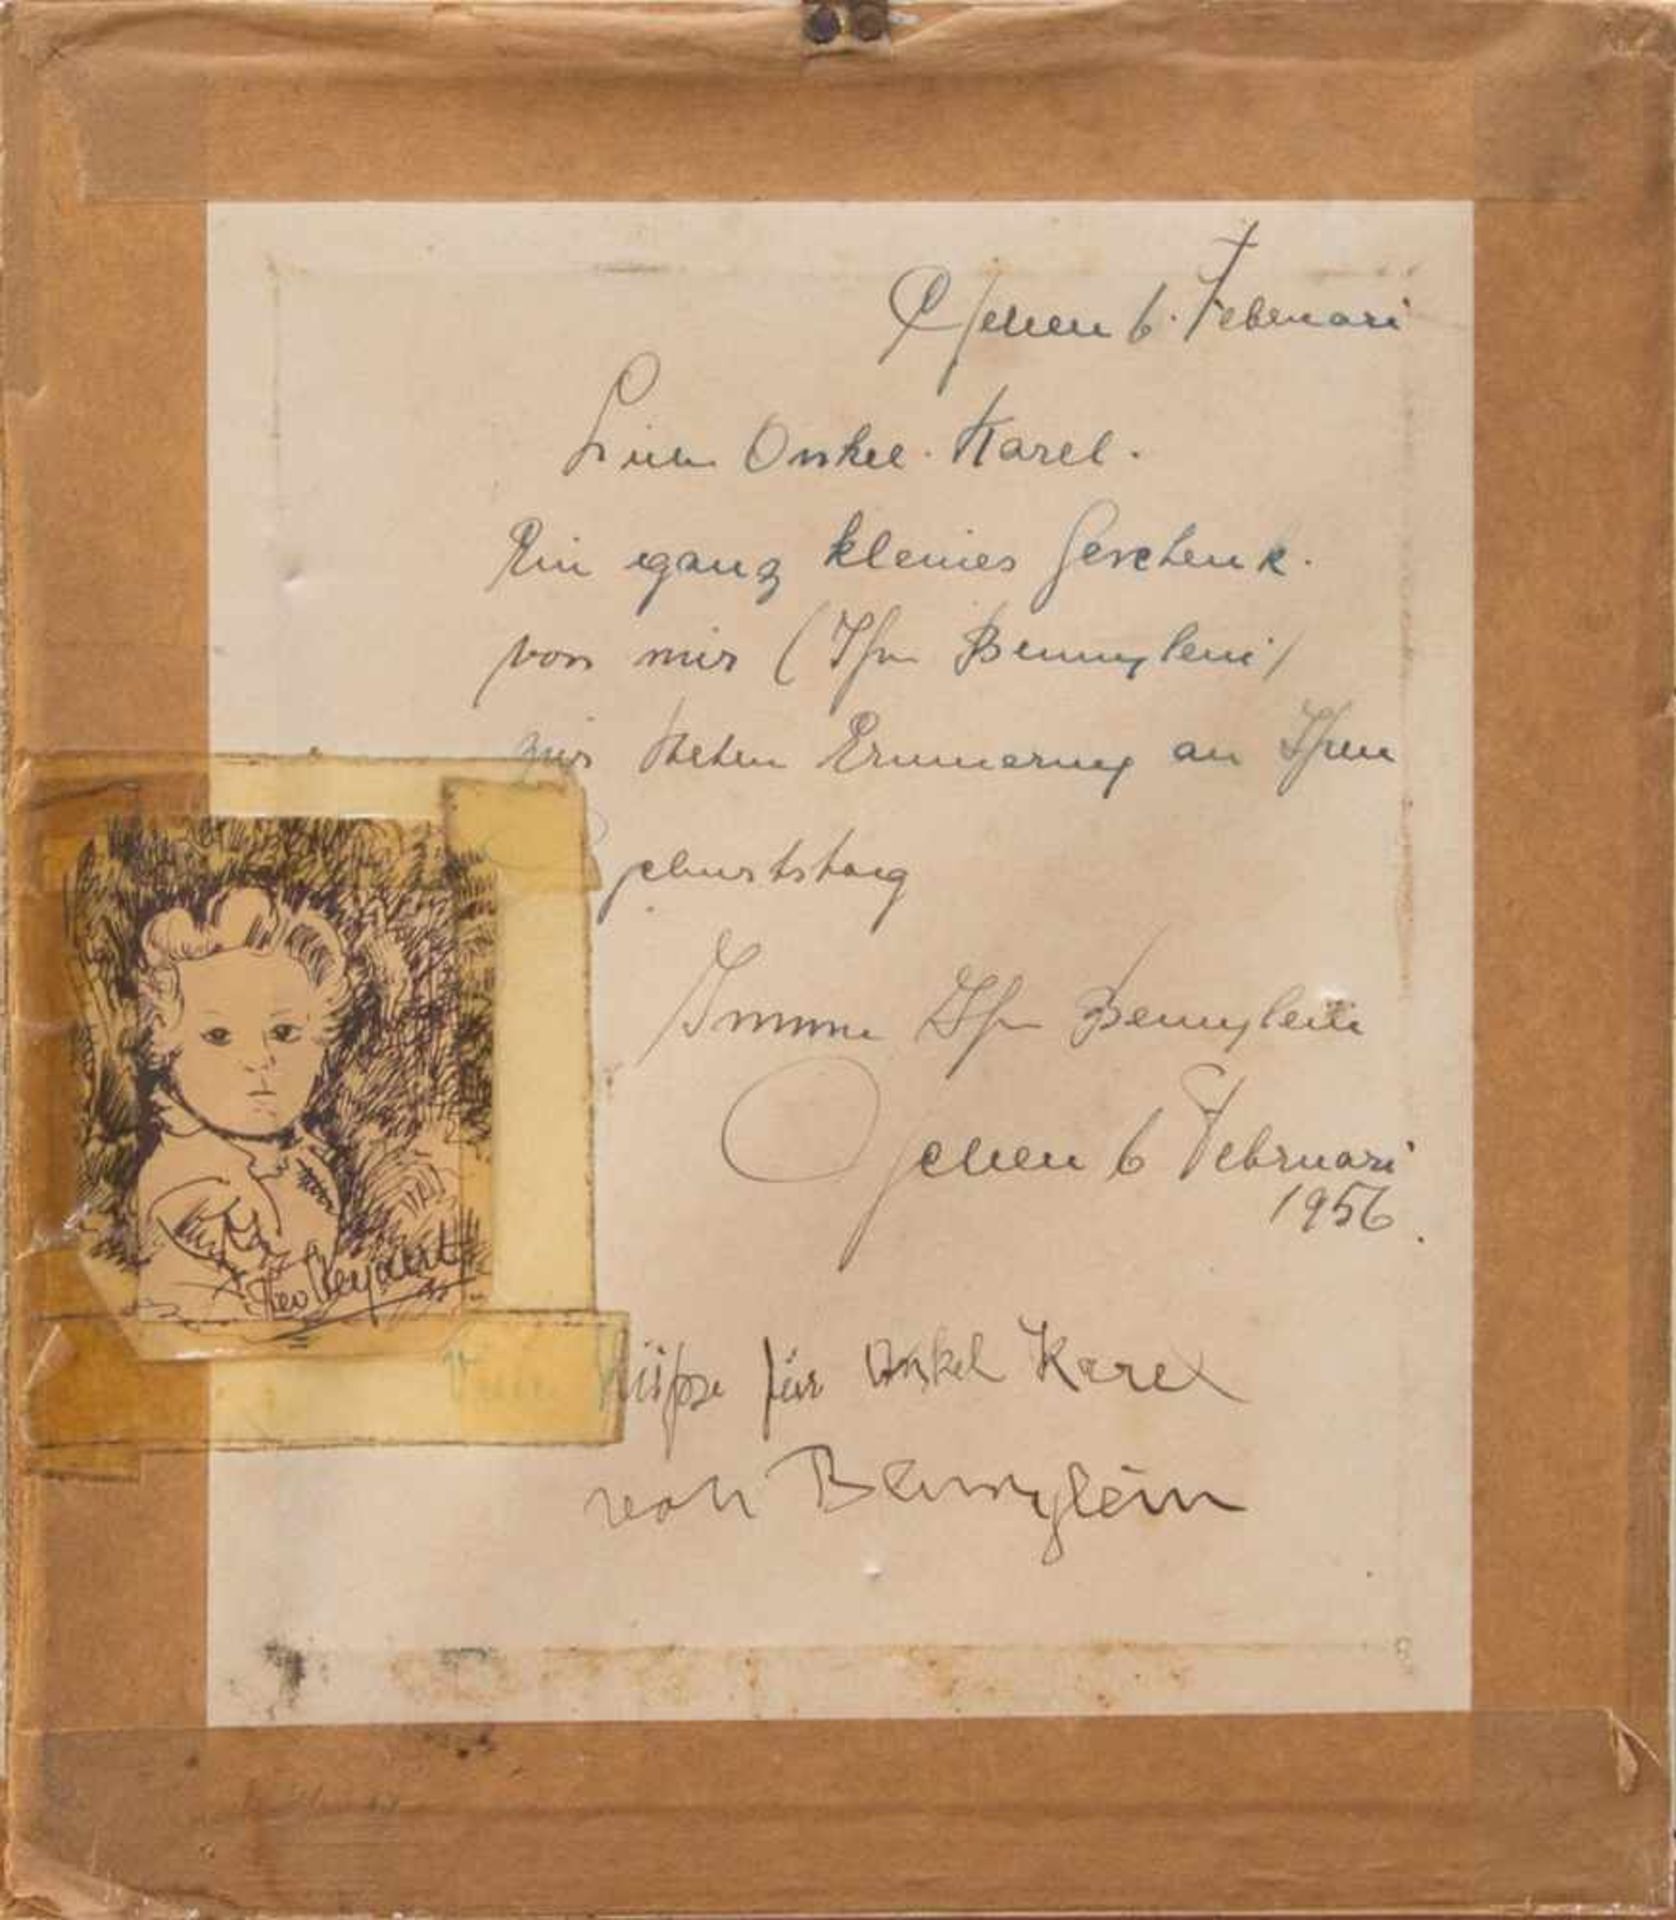 6. Februari
Liebe Onkel. Karel.
Ein ganz kleines Geschenk.
von mir (Ihr Bennylein)
zur steten Erinnerung an Ihren
geburtstag
Immer Ihr Bennylein
6 Februari
1956.
Viele Küsse für Onkel Karel
von Bennylein